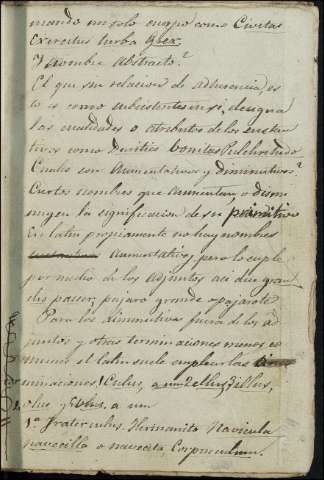 mando un solo cuerpo como Civitas
Exercitus turba Grex,
Y nombre Abstracto?
El que sin relacion de adherencia, es
to es como subcistentes en si, designa
las cualidades o atributos de los sustan
tivos como Duritias bonitas Pulchritudo
Cuales son Aumentativos y Diminutivos?
Ciertos nombres que aumentan, o dismi
nuyen la significacion de su primitivo
En latin propiamente no hay nombres
Aumentativos, pero lo suple
por medio de los Adjuntos asi dice gran
dis passer, pajaro grande o pajarote
Para los diminutivos fuera de los ad
juntos y otras terminaciones menos co
munes el latin suele emplear las
minaciones, 1 Culus, a um 2 ellus, 3 illus,
olus y a um
1ª Fraterculus Hermanito Navicula
navecilla o navecita Corpusculum.